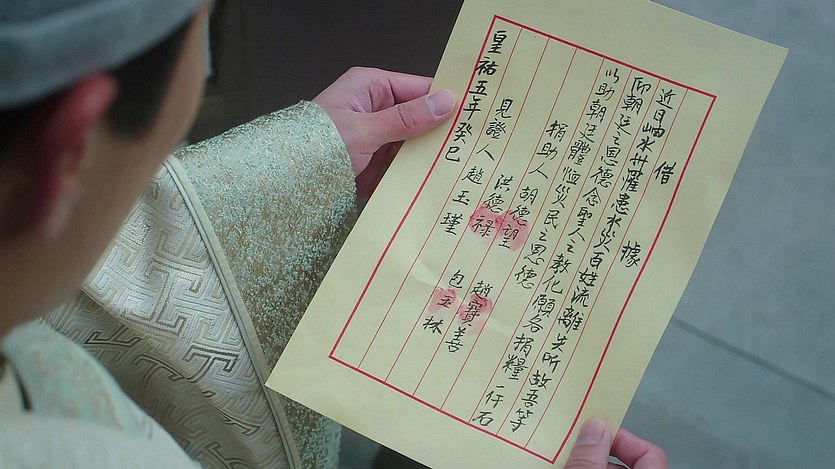 借據
近日岫水卅罹患水災百姓流離失所故吾等
仰朝廷之恩德念聖人之教化願各捐糧一仟石
以助朝廷體恤災民之恩德
捐助人 胡德望 趙寶善
洪德祿 包玉林
見證人 趙玉瑾
皇祐五年癸巳